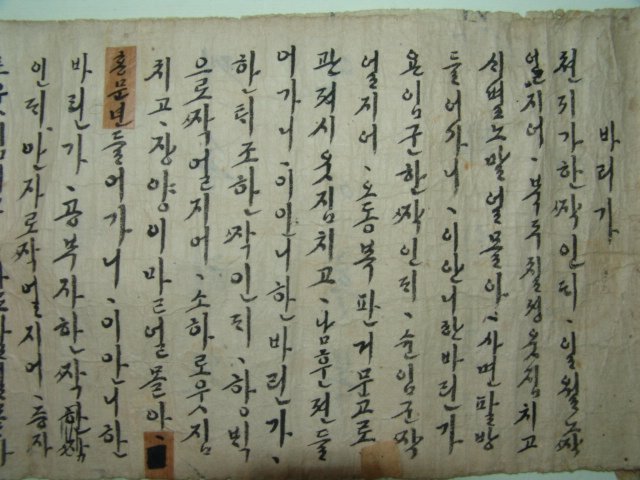 바리가
천지가한짝인듸、일월노짝
얼지어、북두칠셩웃짐치고
노말얼몰아、사면팔방
들어가니、이안니한바린가
요임군한짝인듸、순임군짝
얼지어、오동복판거문고로
관져시웃짐치고、남훈젼들
어가니、이안니한바린가、
한퇴조한짝인듸、항벽
으로짝얼지어、소하로웃짐
치고、장양이마르얼몰아、
홍문년들어가니、이안니한
바린가、공부자한짝한짝
인듸、안자로짝얼지어、증자